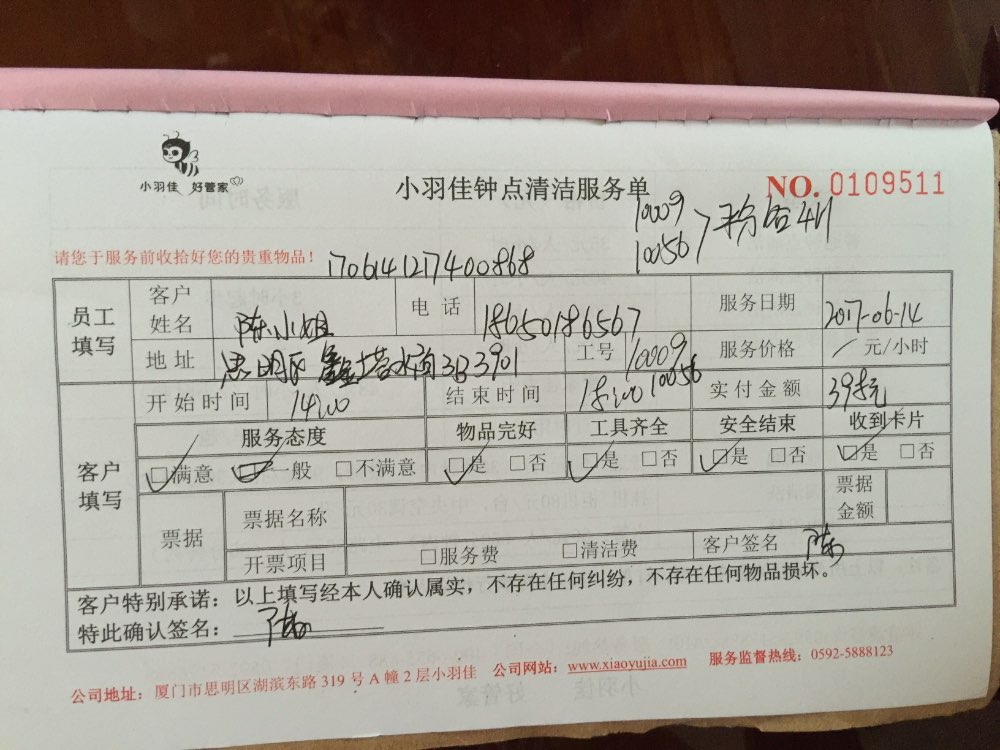 小羽佳 好管家
小羽佳钟点清洁服务单
NO. 0109511
10009
10056
请您于服务前收拾好您的贵重物品！
1706141217400868
员工填写
客户姓名 陈小姐 电话 18650186567 服务日期 2017-06-14
地址 思明区鑫塔水尚3B3901 工号 10009 10056 服务价格 / 元/小时
客户填写
开始时间 14:00 结束时间 18:00 实付金额
服务态度 物品完好 工具齐全 安全结束 收到卡片
□满意 □一般 □不满意 □是 □否 □是 □否 □是 □否 □是 □否
票据 票据名称 票据金额
开票项目 □服务费 □清洁费 客户签名 陈
客户特别承诺：以上填写经本人确认属实，不存在任何纠纷，不存在任何物品损坏。
特此确认签名： 陈
公司地址：厦门市思明区湖滨东路 319 号 A 幢 2 层小羽佳 公司网站：www.xiaoyujia.com 服务监督热线：0592-5888123